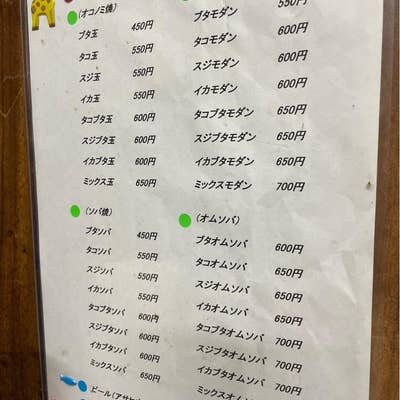 (オコノミ焼)
ブタ玉 450円
タコ玉 550円
スジ玉 550円
イカ玉 550円
タコブタ玉 600円
スジブタ玉 600円
イカブタ玉 600円
ミックス玉 650円
ブタモダン 550円
タコモダン 600円
スジモダン 600円
イカモダン 600円
タコブタモダン 650円
スジブタモダン 650円
イカブタモダン 650円
ミックスモダン 700円
(ソバ焼)
ブタソバ 450円
タコソバ 550円
スジソバ 550円
イカソバ 550円
タコブタソバ 600円
スジブタソバ 600円
イカブタソバ 600円
ミックスソバ 650円
(オムソバ)
ブタオムソバ 600円
タコオムソバ 650円
スジオムソバ 650円
イカオムソバ 650円
タコブタオムソバ 700円
スジブタオムソバ 700円
イカブタオムソバ 700円
ミックスオムソバ
ビール(アサヒ